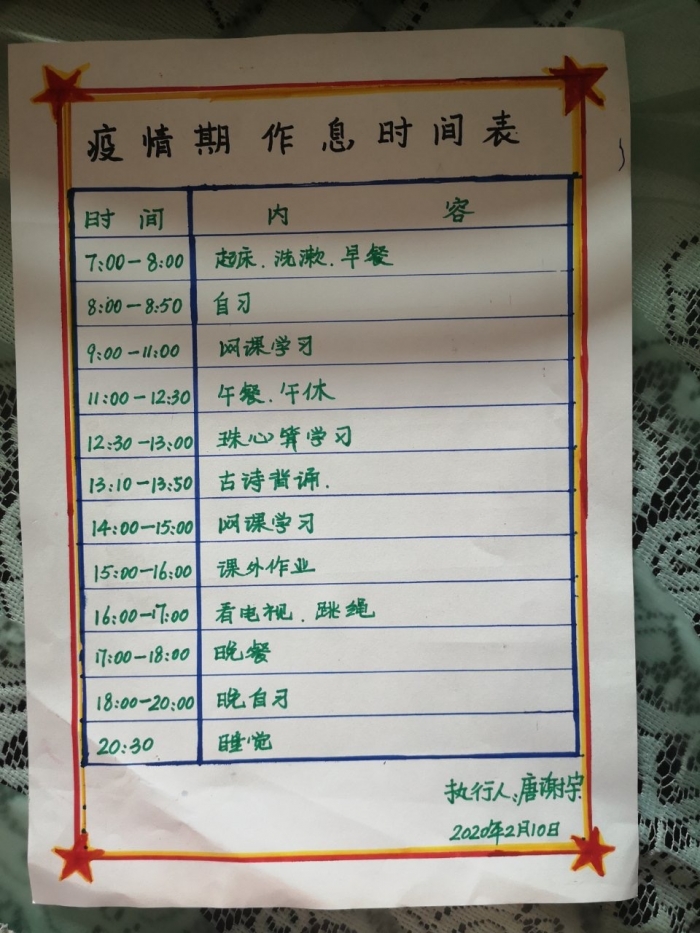 疫情期作息时间表
时间 内容
7:00-8:00 起床.洗漱.早餐
8:00-8:50 自习
9:00-11:00 网课学习
11:00-12:30 午餐.午休
12:30-13:00 珠心算学习
13:10-13:50 古诗背诵.
14:00-15:00 网课学习
15:00-16:00 课外作业
16:00-17:00 看电视.跳绳
17:00-18:00 晚餐
18:00-20:00 晚自习
20:30 睡觉
执行人:唐谢宇
2020年2月10日